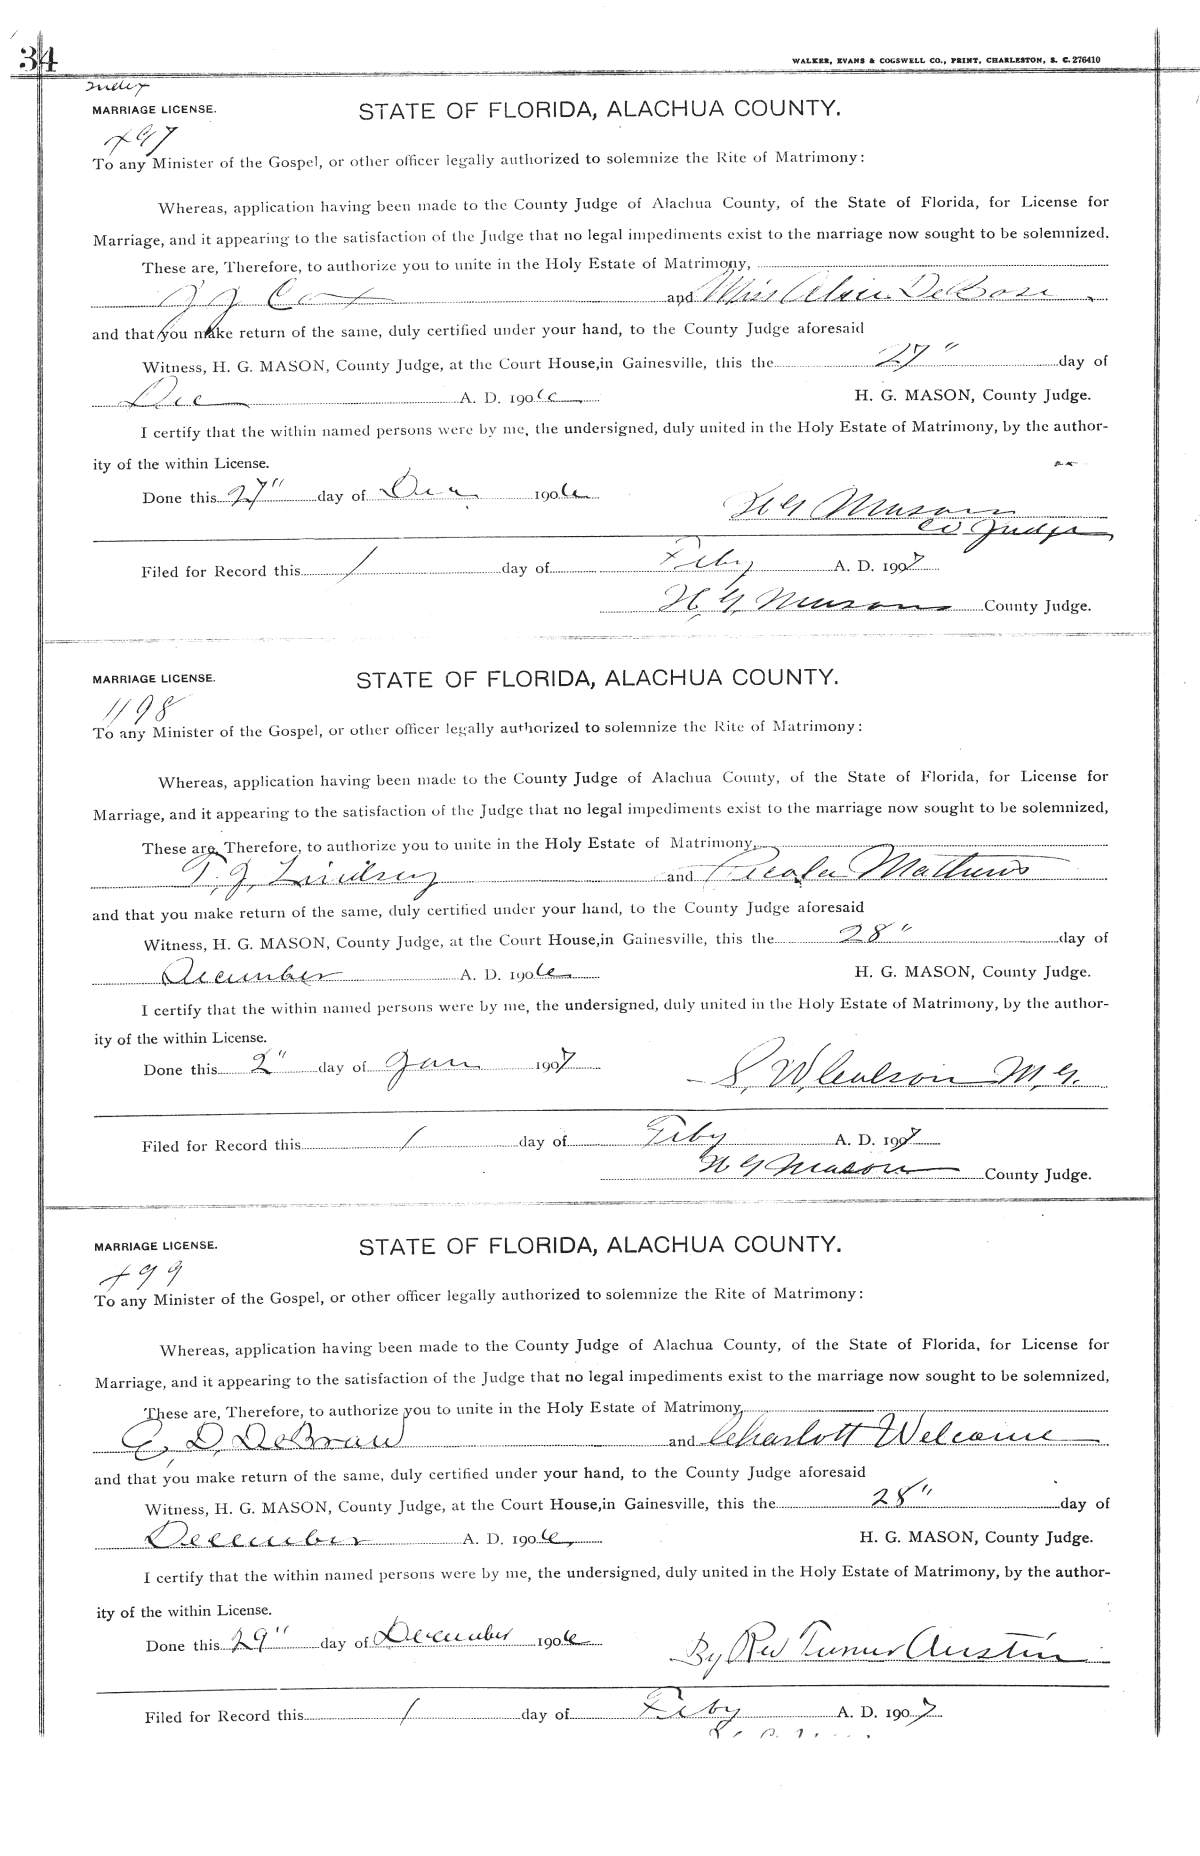 34
WALKER, EVANS & COGSWELL CO., PRINT, CHARLESTON, S. C. 276410
Index
MARRIAGE LICENSE.
STATE OF FLORIDA, ALACHUA COUNTY.
497
To any Minister of the Gospel, or other officer legally authorized to solemnize the Rite of Matrimony:
Whereas, application having been made to the County Judge of Alachua County, of the State of Florida, for License for
Marriage, and it appearing to the satisfaction of the Judge that no legal impediments exist to the marriage now sought to be solemnized.
These are, Therefore, to authorize you to unite in the Holy Estate of Matrimony,
J J Cox and Miss DeBose
and that you make return of the same, duly certified under your hand, to the County Judge aforesaid
Witness, H. G. MASON, County Judge, at the Court House, in Gainesville, this the 27" day of
Dec A. D. 1906 H. G. MASON, County Judge.
I certify that the within named persons were by me, the undersigned, duly united in the Holy Estate of Matrimony, by the author-
ity of the within License.
Done this 27" day of Dec 1906
H G Mason
Co Judge
Filed for Record this 1 day of Feby A. D. 1907
H. G. Mason County Judge.
MARRIAGE LICENSE.
STATE OF FLORIDA, ALACHUA COUNTY.
498
To any Minister of the Gospel, or other officer legally authorized to solemnize the Rite of Matrimony:
Whereas, application having been made to the County Judge of Alachua County, of the State of Florida, for License for
Marriage, and it appearing to the satisfaction of the Judge that no legal impediments exist to the marriage now sought to be solemnized,
These are, Therefore, to authorize you to unite in the Holy Estate of Matrimony,
T. J. Lindsey and Mathews
and that you make return of the same, duly certified under your hand, to the County Judge aforesaid
Witness, H. G. MASON, County Judge, at the Court House, in Gainesville, this the 28" day of
December A. D. 1906 H. G. MASON, County Judge.
I certify that the within named persons were by me, the undersigned, duly united in the Holy Estate of Matrimony, by the author-
ity of the within License.
Done this 2" day of Jan 1907
S. W. M. G.
Filed for Record this 1 day of Feby A. D. 1907
H G Mason County Judge.
MARRIAGE LICENSE.
STATE OF FLORIDA, ALACHUA COUNTY.
499
To any Minister of the Gospel, or other officer legally authorized to solemnize the Rite of Matrimony:
Whereas, application having been made to the County Judge of Alachua County, of the State of Florida, for License for
Marriage, and it appearing to the satisfaction of the Judge that no legal impediments exist to the marriage now sought to be solemnized,
These are, Therefore, to authorize you to unite in the Holy Estate of Matrimony,
E. D. DeBraw and Charlott Welcome
and that you make return of the same, duly certified under your hand, to the County Judge aforesaid
Witness, H. G. MASON, County Judge, at the Court House, in Gainesville, this the 28" day of
December A. D. 1906 H. G. MASON, County Judge.
I certify that the within named persons were by me, the undersigned, duly united in the Holy Estate of Matrimony, by the author-
ity of the within License.
Done this 29" day of December 1906
By Rev Turner Austin
Filed for Record this 1 day of Feby A. D. 1907